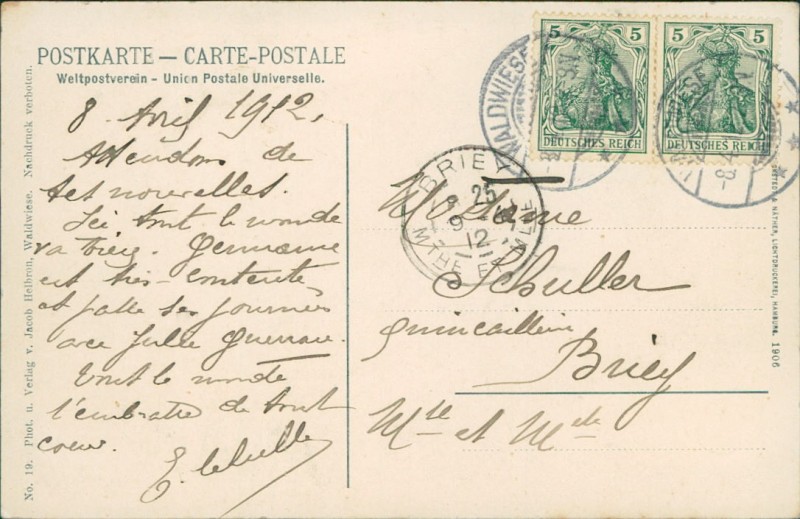 POSTKARTE — CARTE-POSTALE
Weltpostverein - Union Postale Universelle.
8 Avril 1912.
Attendons de
tes nouvelles.
Ici tout le monde
va bien. Germaine
est très-contente
et passe ses journées
avec Julie Guerrau.
Tout le monde
t'embrasse de tout
coeur.
E. Schuller
5 5
DEUTSCHES REICH
5 5
DEUTSCHES REICH
WALDWIESE
WALDWIESE
BRIEY
25
9
12
MTHE ET MLLE
Madame
Schuller
quincaillière
Briey
Mthe et Mlle
No. 19. Phot. u. Verlag v. Jacob Helbron, Waldwiese. Nachdruck verboten.
NATHER, LICHTDRUCKEREI, HAMBURG. 1906